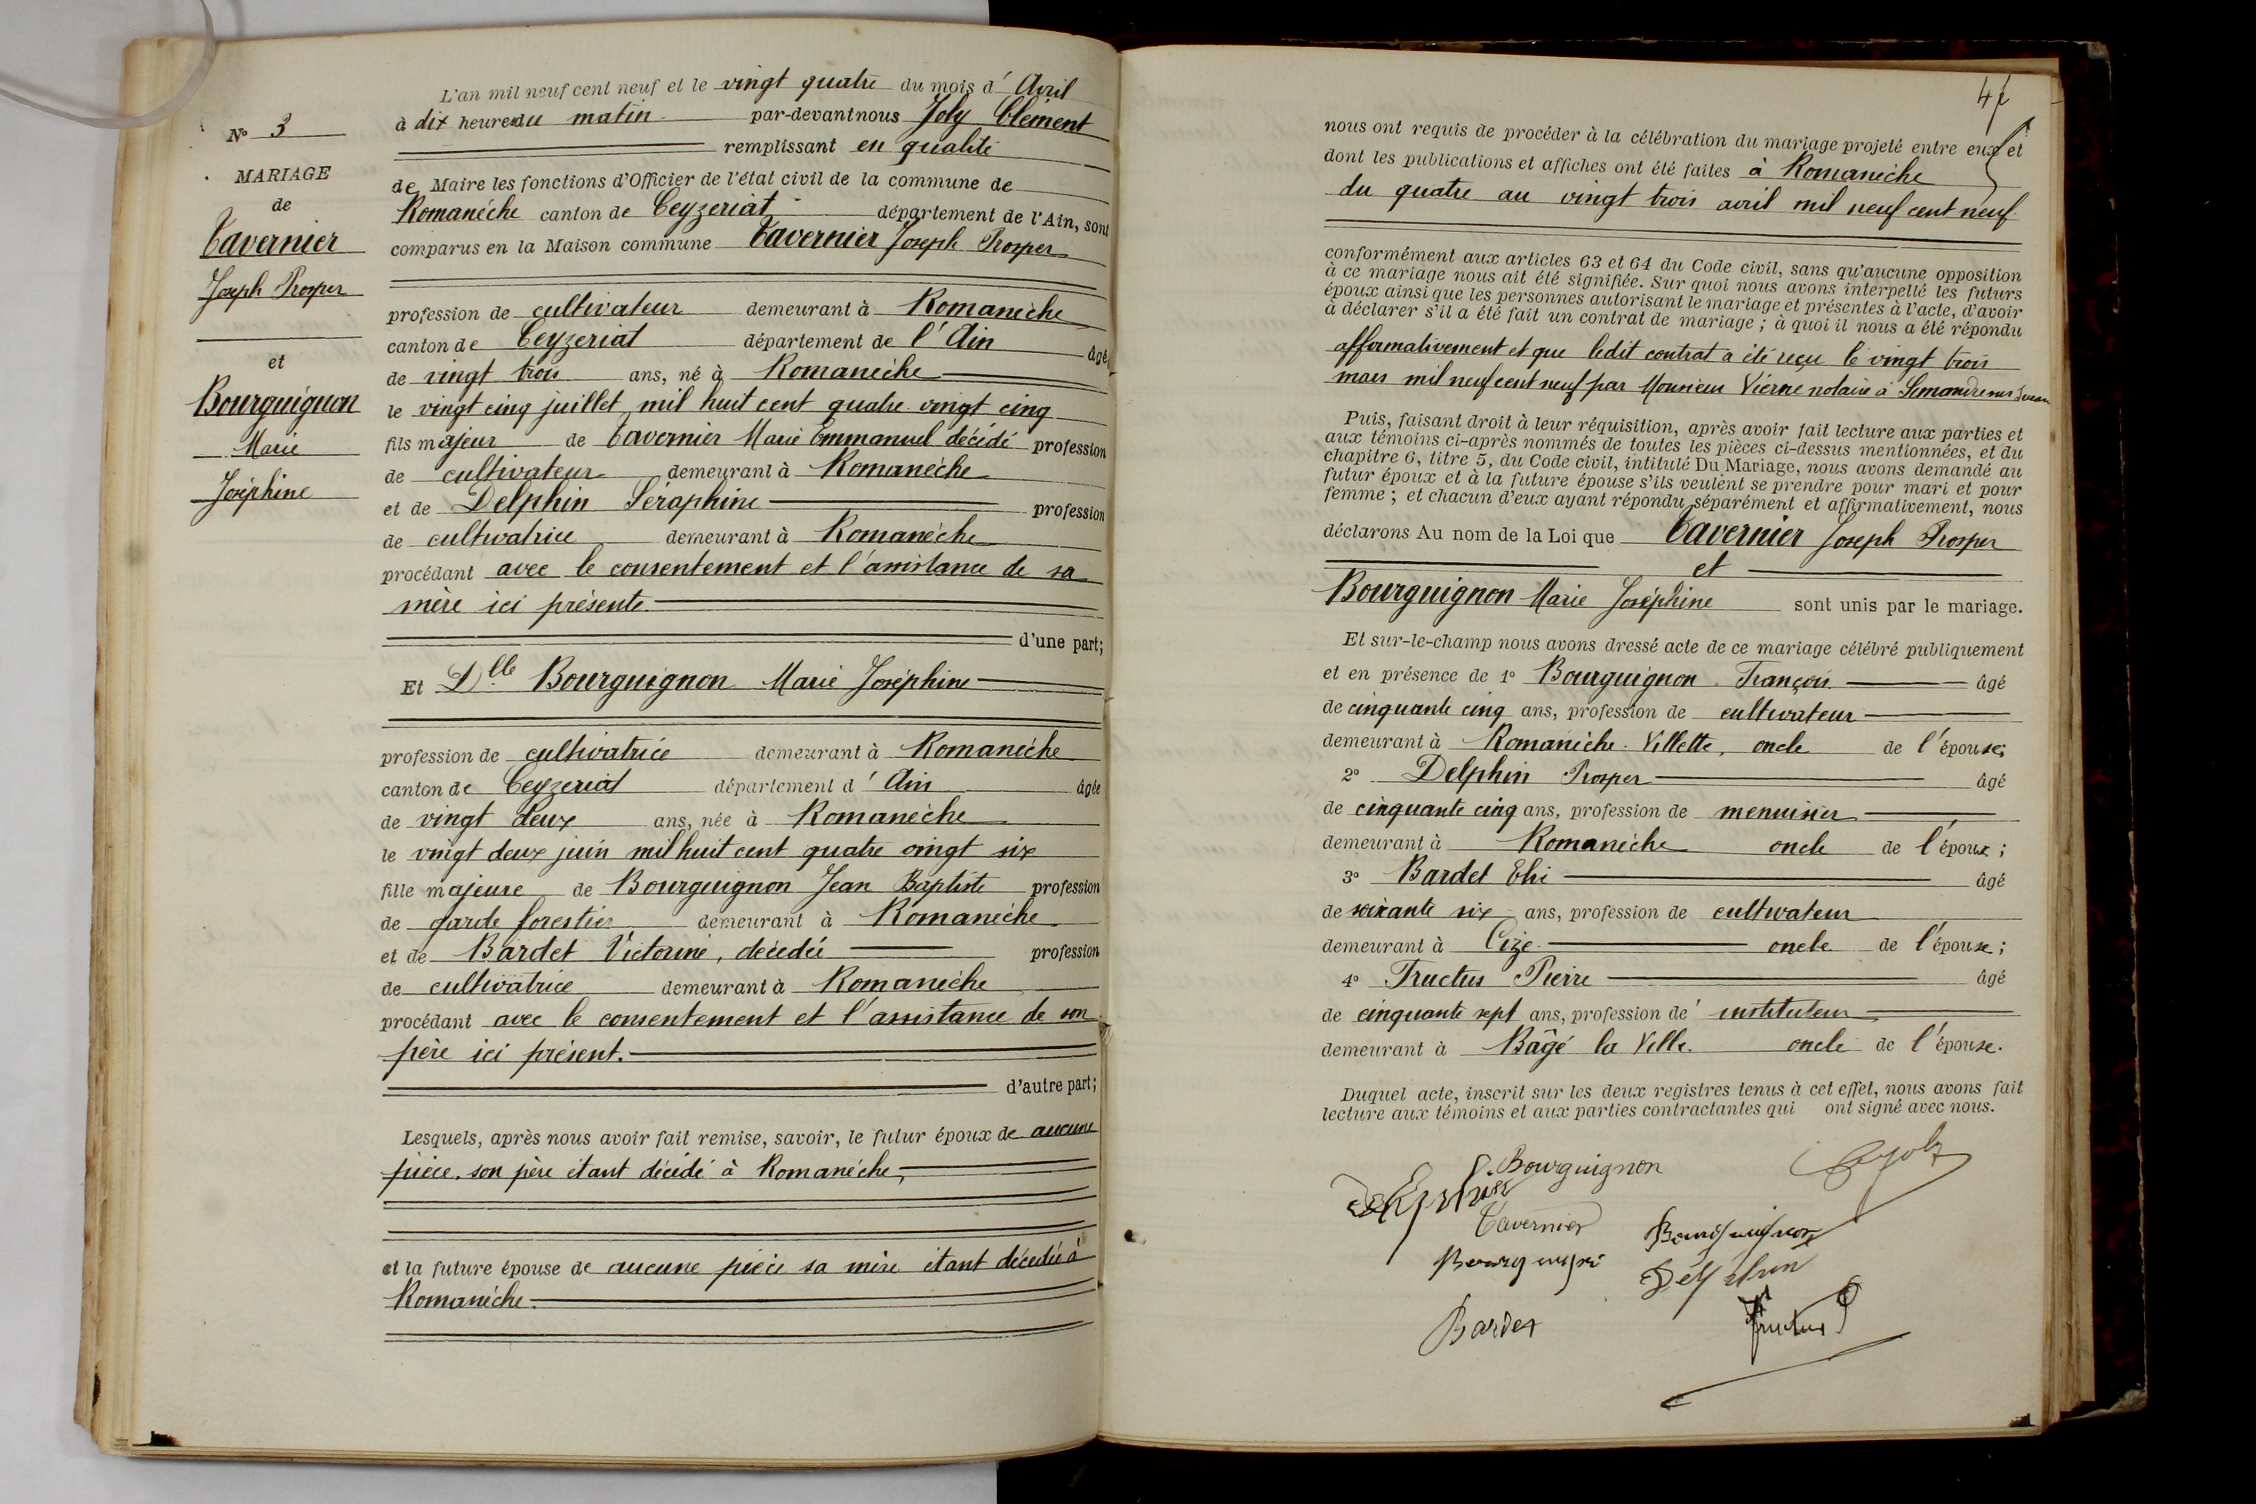 N° 3
MARIAGE
de
Tavernier
Joseph Prosper
et
Bourguignon
Marie
Joséphine
L'an mil neuf cent neuf et le vingt quatre du mois d'Avril
à dix heures du matin par-devant nous Joly Clément
remplissant en qualité
de Maire les fonctions d'Officier de l'état civil de la commune de
Romanèche canton de Ceyzeriat département de l'Ain, sont
comparus en la Maison commune Tavernier Joseph Prosper
profession de cultivateur demeurant à Romanèche
canton de Ceyzeriat département de l'Ain âgé
de vingt trois ans, né à Romanèche
le vingt cinq juillet mil huit cent quatre vingt cinq
fils majeur de Tavernier Marie Emmanuel décédé profession
de cultivateur demeurant à Romanèche
et de Delphin Séraphine profession
de cultivatrice demeurant à Romanèche
procédant avec le consentement et l'assistance de sa
mère ici présente.
d'une part;
Et Dlle Bourguignon Marie Joséphine
profession de cultivatrice demeurant à Romanèche
canton de Ceyzeriat département d'Ain âgée
de vingt deux ans, née à Romanèche
le vingt deux juin mil huit cent quatre vingt six
fille majeure de Bourguignon Jean Baptiste profession
de garde forestier demeurant à Romanèche
et de Bardet Victorine, décédée profession
de cultivatrice demeurant à Romanèche
procédant avec le consentement et l'assistance de son
père ici présent.
d'autre part;
Lesquels, après nous avoir fait remise, savoir, le futur époux de aucune
pièce, son père étant décédé à Romanèche,
et la future épouse de aucune pièce sa mère étant décédée à
Romanèche.
nous ont requis de procéder à la célébration du mariage projeté entre eux et
dont les publications et affiches ont été faites à Romanèche
du quatre au vingt trois avril mil neuf cent neuf.
conformément aux articles 63 et 64 du Code civil, sans qu'aucune opposition
à ce mariage nous ait été signifiée. Sur quoi nous avons interpellé les futurs
époux ainsi que les personnes autorisant le mariage et présentes à l'acte, d'avoir
à déclarer s'il a été fait un contrat de mariage ; à quoi il nous a été répondu
affirmativement et que ledit contrat a été reçu le vingt trois
mars mil neuf cent neuf par Monsieur Vierne notaire à Simandre sur Suran
Puis, faisant droit à leur réquisition, après avoir fait lecture aux parties et
aux témoins ci-après nommés de toutes les pièces ci-dessus mentionnées, et du
chapitre 6, titre 5, du Code civil, intitulé Du Mariage, nous avons demandé au
futur époux et à la future épouse s'ils veulent se prendre pour mari et pour
femme ; et chacun d'eux ayant répondu séparément et affirmativement, nous
déclarons Au nom de la Loi que Tavernier Joseph Prosper
et
Bourguignon Marie Joséphine sont unis par le mariage.
Et sur-le-champ nous avons dressé acte de ce mariage célébré publiquement
et en présence de 1° Bourguignon François âgé
de cinquante cinq ans, profession de cultivateur
demeurant à Romanèche. Villette, oncle de l'épouse;
2° Delphin Prosper âgé
de cinquante cinq ans, profession de menuisier
demeurant à Romanèche oncle de l'époux ;
3° Bardet Elri âgé
de soixante six ans, profession de cultivateur
demeurant à Cize. oncle de l'épouse ;
4° Fructus Pierre âgé
de cinquante sept ans, profession de instituteur
demeurant à Bâgé la Ville. oncle de l'épouse.
Duquel acte, inscrit sur les deux registres tenus à cet effet, nous avons fait
lecture aux témoins et aux parties contractantes qui ont signé avec nous.
Bourguignon
Tavernier
Bourguignon
Delphin
Bardet
Fructus